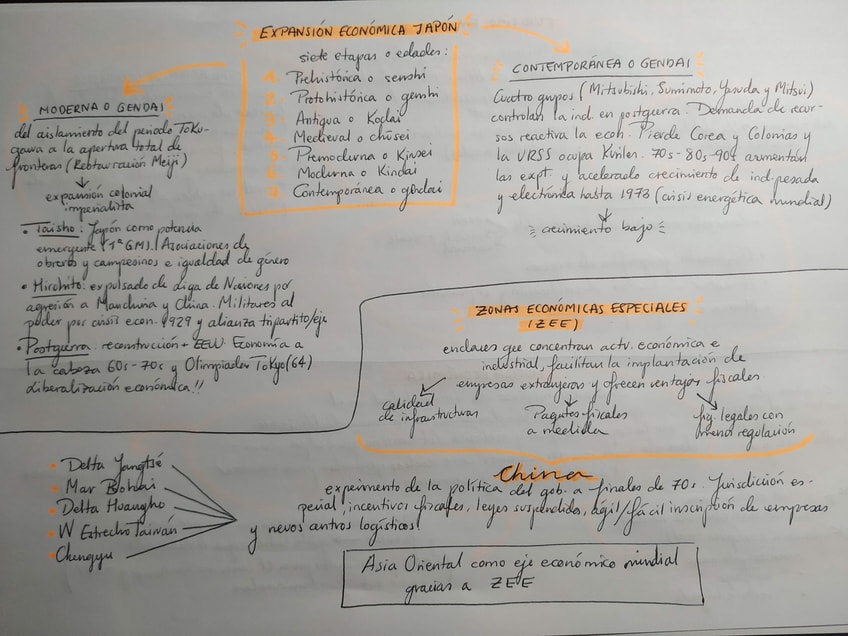 EXPANSIÓN ECONÓMICA JAPÓN
siete etapas o edades:
1. Prehistórica o senshi
2. Protohistórica o genshi
3. Antigua o Kodai
4. Medieval o chūsei
5. Premoderna o Kinsei
6. Moderna o Kindai
7. Contemporánea o gendai
MODERNA O GENDAI
del aislamiento del periodo Toku-
gawa a la apertura total de
fronteras (Restauración Meiji)
expansión colonial
imperialista
• Taisho: Japón como potencia
emergente (1ª GM). Asociaciones de
obreros y campesinos e igualdad de género
• Hirohito: expulsado de Liga de Naciones por
agresión a Manchuria y China. Militares al
poder por crisis econ. 1929 y alianza tripartito/eje
• Postguerra: reconstrucción + EEUU. Economía a
la cabeza 60s-70s y Olimpiadas Tokyo (64)
liberalización económica!!
CONTEMPORÁNEA O GENDAI
Cuatro grupos (Mitsubishi, Sumimoto, Yasuda y Mitsui)
controlan la ind. en postguerra. Demanda de recur-
sos reactiva la econ. Pierde Corea y Colonias y
la URSS ocupa Kuriles. 70s-80s-90s aumentan
las expt. y acelerado crecimiento de ind. pesada
y electrónica hasta 1973 (crisis energética mundial)
crecimiento bajo
ZONAS ECONÓMICAS ESPECIALES
(ZEE)
enclaves que concentran actv. económica e
industrial, facilitan la implantación de
empresas extranjeras y ofrecen ventajas fiscales
calidad
de infraestructuras
Paquetes fiscales
a medida
fig. legales con
menor regulación
China
experimento de la política del gob. a finales de 70s. Jurisdicción es-
pecial, incentivos fiscales, leyes suspendidas, ágil/fácil inscripción de empresas
y nuevos centros logísticos!
• Delta Yangtsé
• Mar Bohai
• Delta Huangho
• W Estrecho Taiwán
• Chengyu
Asia Oriental como eje económico mundial
gracias a ZEE